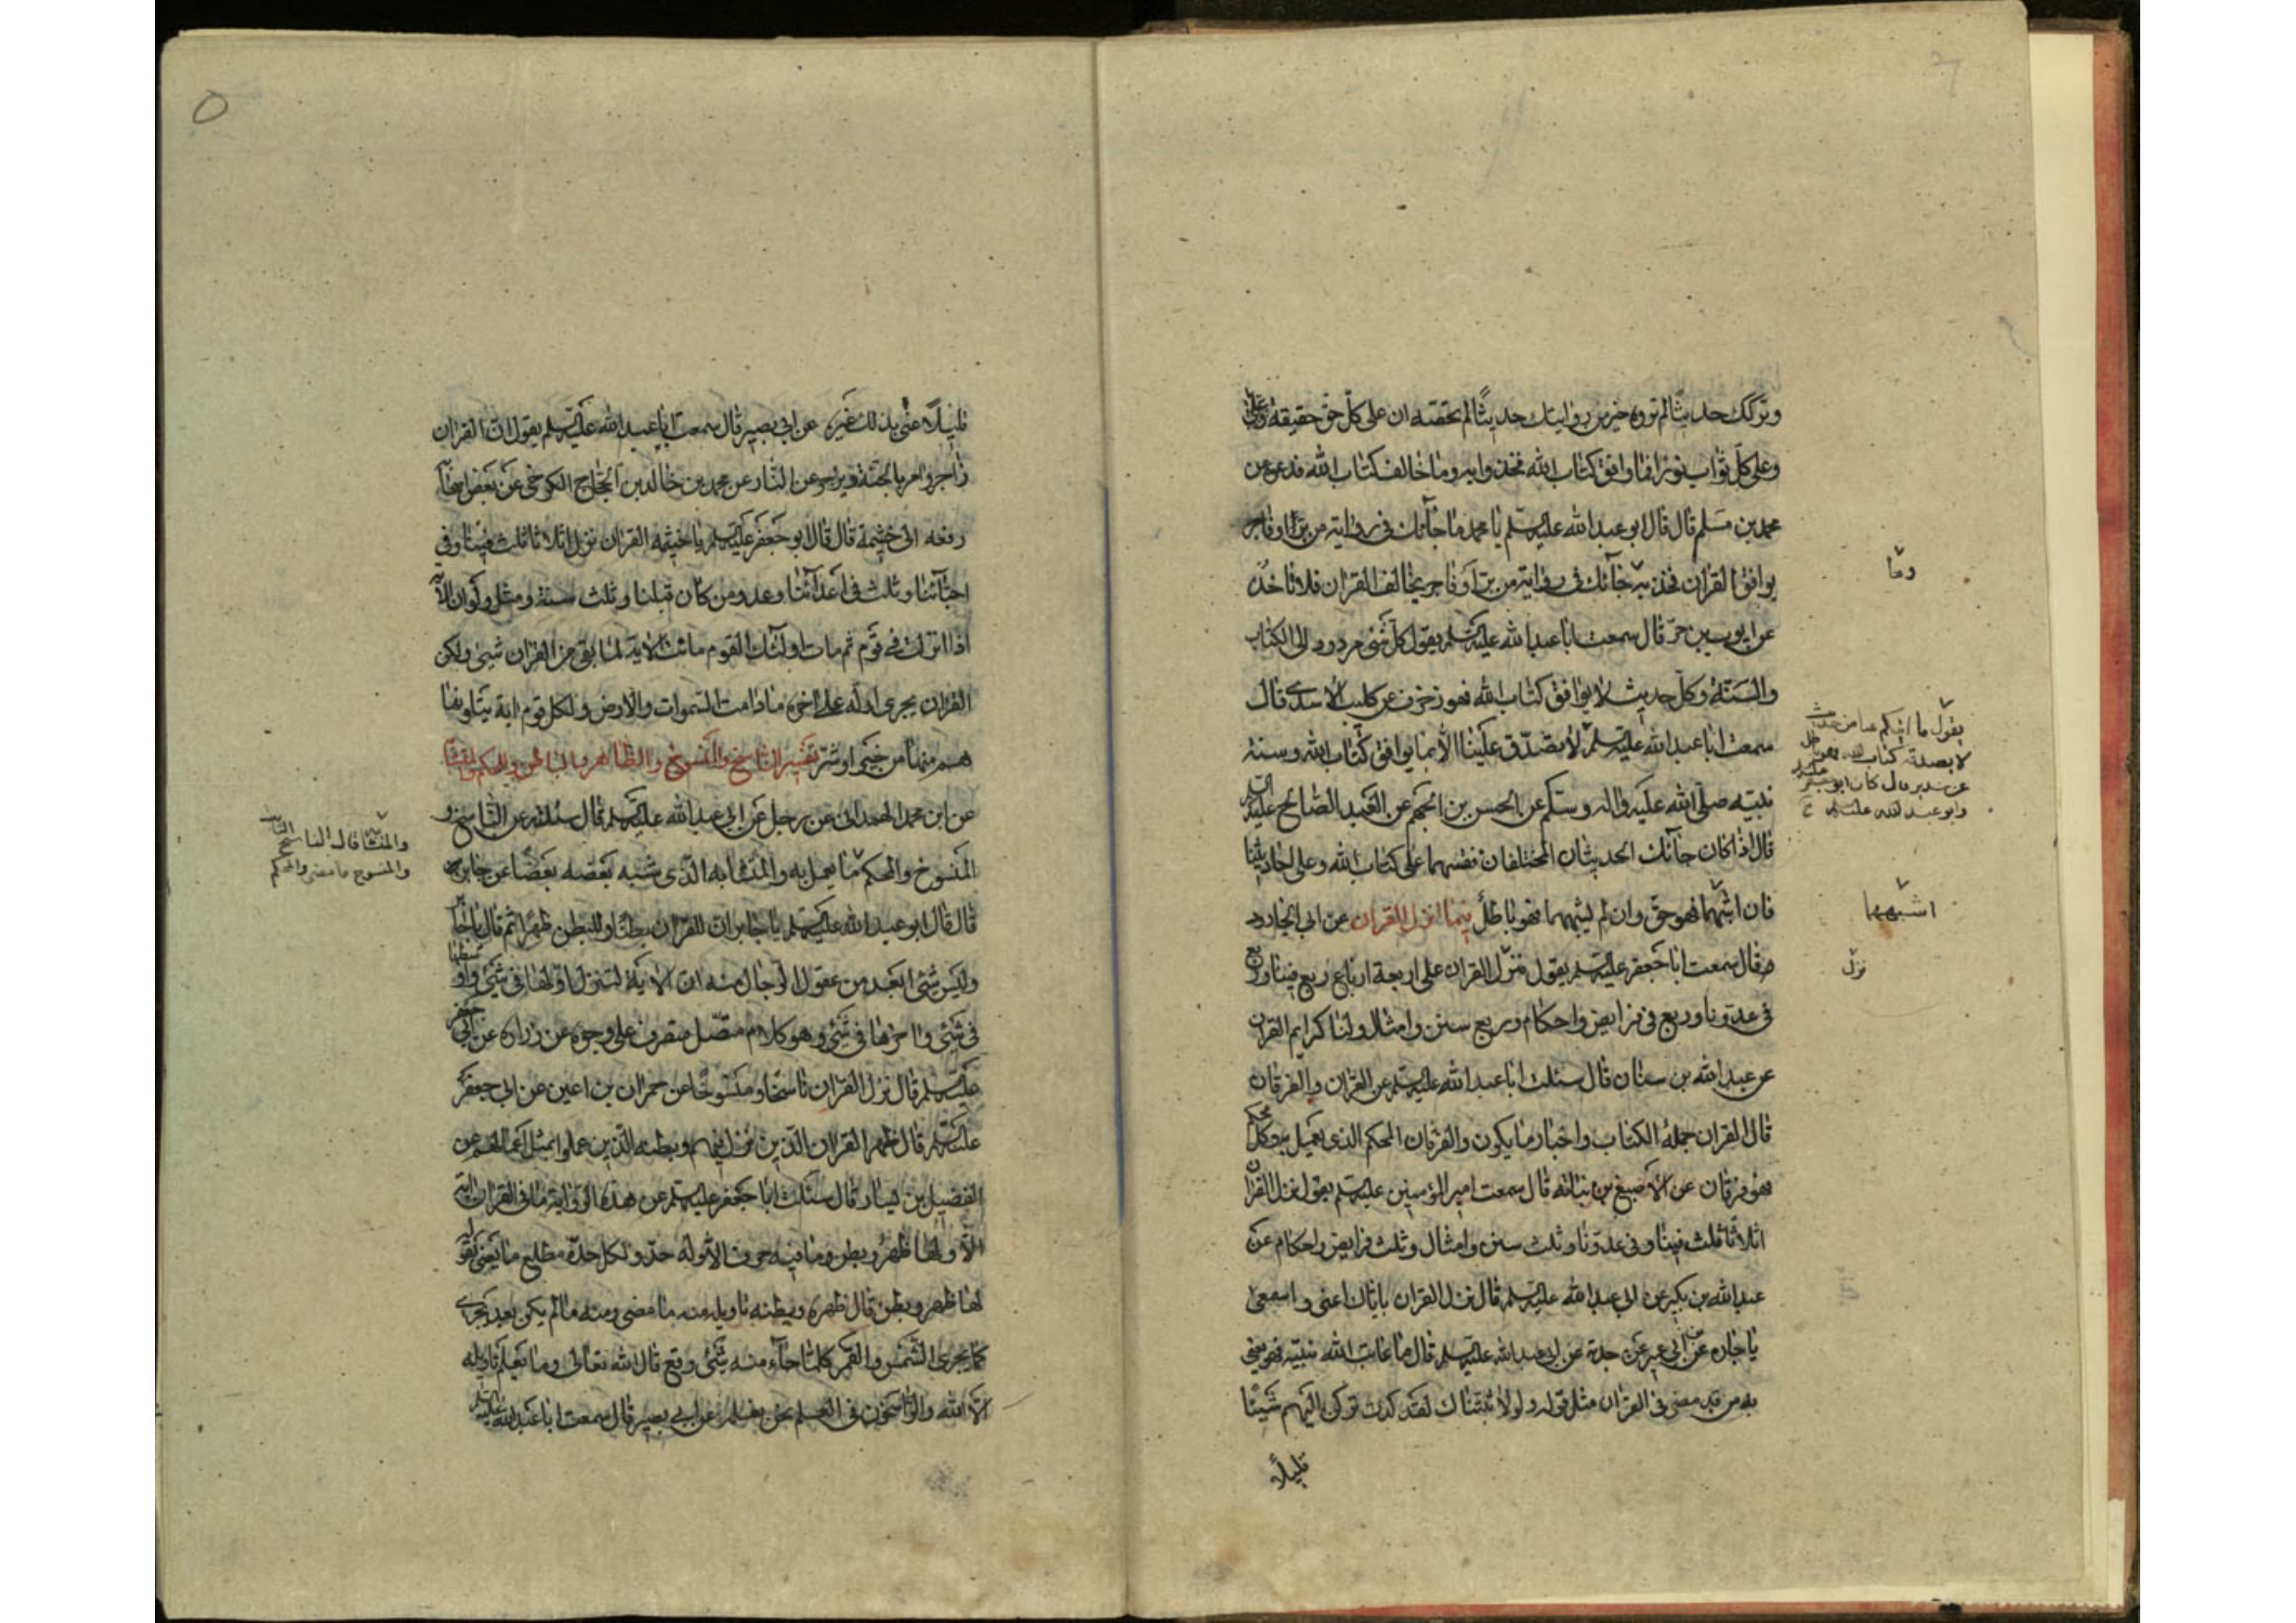 وتركك حديثا لم تروه خير من روايتك حديثا لم تحصه ان على كل حق حقيقة
وعلى كل ثواب نورا فما وافق كتاب الله فخذوا به وما خالف كتاب الله فدعوه عن
محمد بن مسلم قال قال ابو عبد الله عليه السلم يا محمد ما جآئك فى رواية من برّ او فاجر
يوافق القران فخذ به جآئك فى رواية من برّ او فاجر يخالف القران فلا تاخذ
وما
عن ايوب بن حرّ قال سمعت ابا عبد الله عليه السلم يقول كل شئ مردود الى الكتاب
والسنة وكل حديث لا يوافق كتاب الله فهو زخرف عن كليب الاسدى قال
سمعت ابا عبد الله عليه السلم لا تصدق علينا الا بما يوافق كتاب الله وسنة
يقول ما اتيكم عنا من حديث
لا يصدقه كتاب الله فهو باطل
عن سدير قال كان ابو جعفر
وابو عبد الله عليهما
نبيه صلى الله عليه واله وسلم عن الحسن بن الجهم عن العبد الصالح عليه السلم
قال اذا كان جآئك الحديثان المختلفان فقسهما على كتاب الله وعلى احاديثنا
فان اشبهما فهو حق وان لم يشبههما فهو باطل فيما انزل القران عن ابى الجارود
اشبهها
قال سمعت ابا جعفر عليه السلم يقول نزّل القران على اربعة ارباع ربع فينا وربع
نزل
فى عدونا وربع فى فرايض واحكام وربع سنن وامثال ولنا كرايم القران
عن عبد الله بن سنان قال سئلت ابا عبد الله عليه السلم عن القران والفرقان
قال القران جملة الكتاب واخبار ما يكون والفرقان المحكم الذى يعمل به وكل محكم
فهو فرقان عن الاصبغ بن نباته قال سمعت امير المؤمنين عليه السلم يقول نزل القران
اثلاثا ثلث فينا وفى عدونا وثلث سنن وامثال وثلث فرايض واحكام عن
عبد الله بن بكير عن ابى عبد الله عليه السلم قال نزل القران باياك اعنى واسمعى
يا جاره عن ابن ابى عمير عمن حدثه عن ابى عبد الله عليه السلم قال ما عاتب الله نبيه فهو يعنى
به من قد مضى فى القران مثل قوله ولولا ان ثبتناك لقد كدت تركن اليهم شيئا
قليلا
قليلا عنى بذلك غيره عن ابى بصير قال سمعت ابا عبد الله عليه السلم يقول ان القران
زاجر وامر يامر بالجنة ويزجر عن النار عن محمد بن خالد بن الحجاج الكرخى عن بعض اصحابه
رفعه الى خيثمة قال قال ابو جعفر عليه السلم يا خيثمة القران نزل اثلاثا ثلث فينا وفى
احبآئنا وثلث فى اعدآئنا وعدو من كان قبلنا وثلث سنة ومثل ولو ان الاية
اذا نزلت فى قوم ثم مات اولئك القوم ماتت الاية لما بقى من القران شئ ولكن
القران يجرى اوله على اخره ما دامت السموات والارض ولكل قوم اية يتلونها
هم منها من خير او شر تفسير الناسخ والمنسوخ والظاهر والباطن والمحكم والمتشابه
عن ابن محمد الهمدانى عن رجل عن ابى عبد الله عليه السلم قال سئلته عن الناسخ و
والمتشابه قال الناسخ الثابت
والمنسوخ ما مضى والمحكم
المنسوخ والمحكم ما يعمل به والمتشابه الذى شبه بعضه بعضا عن جابر
قال قال ابو عبد الله عليه السلم يا جابر ان للقران بطنا وللبطن ظهرا ثم قال يا جابر
وليس شئ ابعد من عقول الرجال منه ان الاية لتنزل اولها فى شئ واوسطها
فى شئ واخرها فى شئ وهو كلام متصل متصرف على وجوه عن زرارة عن ابى جعفر
عليه السلم قال نزل القران ناسخا ومنسوخا عن حمران بن اعين عن ابى جعفر
عليه السلم قال ظهر القران الذين نزل فيهم وبطنه الذين عملوا بمثل اعمالهم عن
الفضيل بن يسار قال سئلت ابا جعفر عليه السلم عن هذه الرواية ما فى القران اية
الا ولها ظهر وبطن وما فيه حرف الا وله حد ولكل حد مطلع ما يعنى بقوله
لها ظهر وبطن قال ظهره وبطنه تاويله منه ما مضى ومنه ما لم يكن بعد يجرى
كما يجرى الشمس والقمر كلما جآء منه شئ وقع قال الله تعالى وما يعلم تاويله
الا الله والراسخون فى العلم نحن نعلمه عن ابى بصير قال سمعت ابا عبد الله عليه السلم